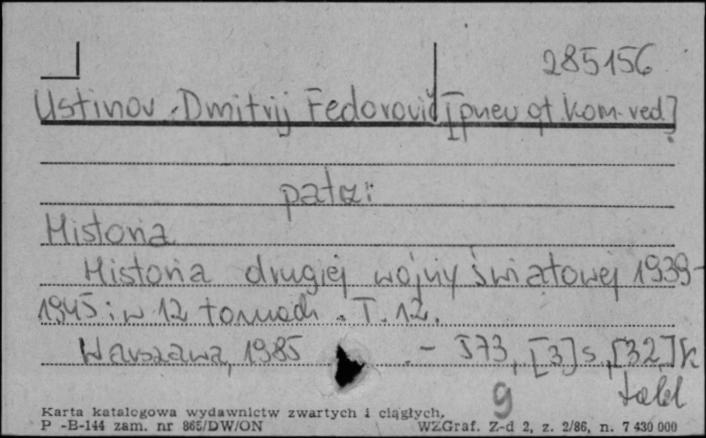 285156
Ustinov, Dmitrij Fedorovič [przew. gł. kom. red.]
patrz:
Historia
Historia drugiej wojny światowej 1939-
1945 : w 12 tomach. T. 12.
Warszawa, 1985 .- 573, [3] s., [32] k
tabl
9
Karta katalogowa wydawnictw zwartych i ciągłych.
P -B-144 zam. nr 865/DW/ON WZGraf. Z-d 2, z. 2/86, n. 7 430 000